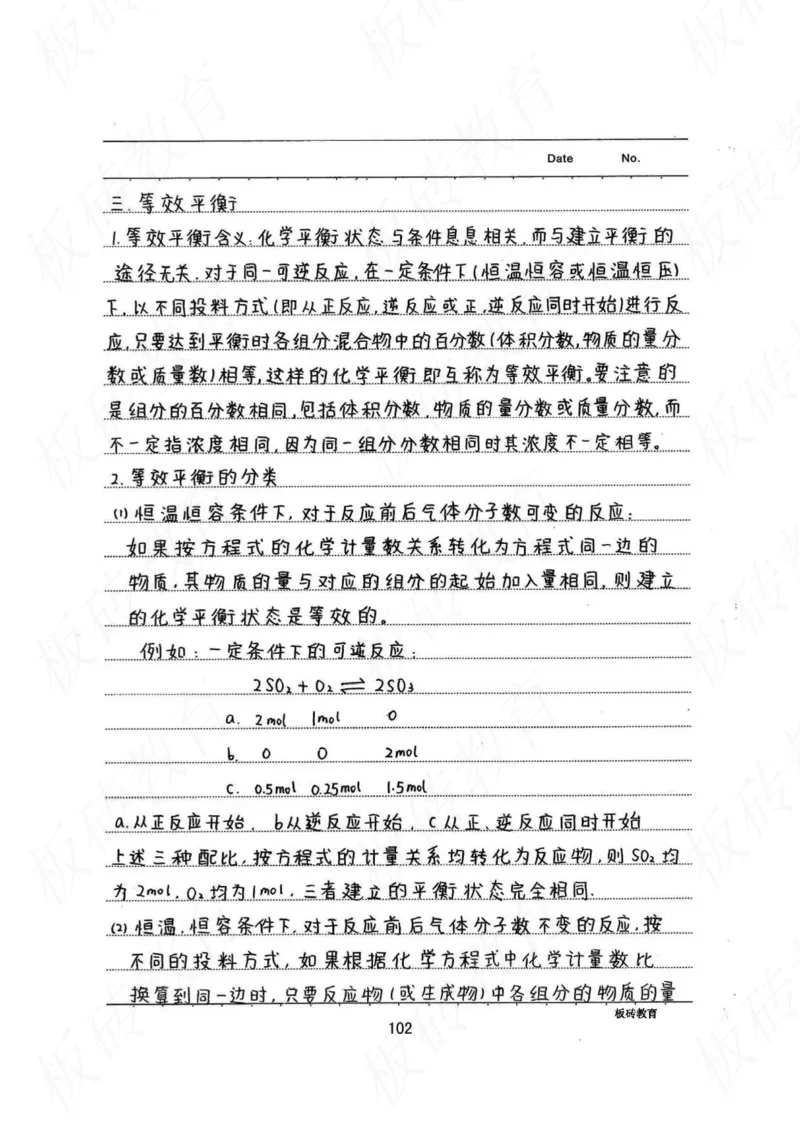 Date No.
三.等效平衡
1.等效平衡含义:化学平衡状态与条件息息相关,而与建立平衡的
途径无关.对于同一可逆反应,在一定条件下(恒温恒容或恒温恒压)
下,以不同投料方式(即从正反应,逆反应或正,逆反应同时开始)进行反
应,只要达到平衡时各组分混合物中的百分数(体积分数,物质的量分
数或质量数)相等,这样的化学平衡即互称为等效平衡。要注意的
是组分的百分数相同,包括体积分数.物质的量分数或质量分数,而
不一定指浓度相同,因为同一组分分数相同时其浓度不一定相等。
2.等效平衡的分类
(1)恒温恒容条件下,对于反应前后气体分子数可变的反应:
如果按方程式的化学计量数关系转化为方程式同一边的
物质,其物质的量与对应的组分的起始加入量相同,则建立
的化学平衡状态是等效的。
例如:一定条件下的可逆反应:
2SO₂+O₂⇌2SO₃
a. 2mol 1mol 0
b. 0 0 2mol
c. 0.5mol 0.25mol 1.5mol
a.从正反应开始, b从逆反应开始, c从正、逆反应同时开始
上述三种配比,按方程式的计量关系均转化为反应物,则SO₂均
为2mol,O₂均为1mol,三者建立的平衡状态完全相同.
(2)恒温,恒容条件下,对于反应前后气体分子数不变的反应,按
不同的投料方式,如果根据化学方程式中化学计量数比
换算到同一边时,只要反应物(或生成物)中各组分的物质的量
板砖教育
102